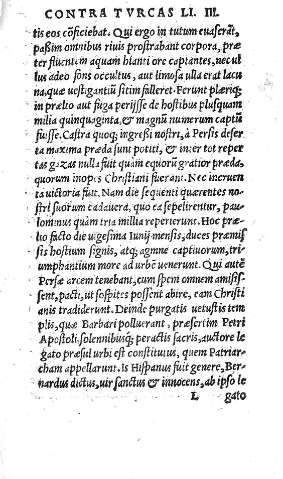 CONTRA TVRCAS LI. III.
tis eos cōficiebat. Qui ergo in tutum euaserāt,
paßim omnibus riuis prostrabant corpora, præ
ter fluentem aquam hianti ore captantes, uec ul
lus adeo fons occultus, aut limosa ulla erat lacu
na, quæ uestigantiū sitim falleret. Ferunt plæriq;
in prælio aut fuga perijsse de hostibus plusquam
milia quinquaginta, & magnū numerum captū
fuisse. Castra quoq; ingreßi nostri, à Persis deser
ta maxima præda sunt potiti, & inter tot reper
tas gazas nulla fuit quàm equorū gratior præda,
quorum inopes Christiani fuerant. Nec incruen
ta uictoria fuit. Nam die sequenti quærentes no-
stri suorum cadauera, quo ea sepelirentur, pau-
lominus quàm tria millia repererunt. Hoc præ-
lio facto die uigesima Iunij mensis, duces præmis
sis hostium signis, atq; agmine captiuorum, tri-
umphantium more ad urbē uenerunt. Qui autē
Persæ arcem tenebant, cum spem omnem amisis-
sent, pacti, ut sospites possent abire, eam Christi
anis tradiderunt. Deinde purgatis uetustis tem
plis, quæ Barbari polluerant, præsertim Petri
Apostoli, solennibusq; peractis sacris, auctore le
gato præsul urbi est constitutus, quem Patriar-
cham appellarunt. Is Hispanus fuit genere, Ber-
nardus dictus, uir sanctus & innocens, ab ipso le
L gato